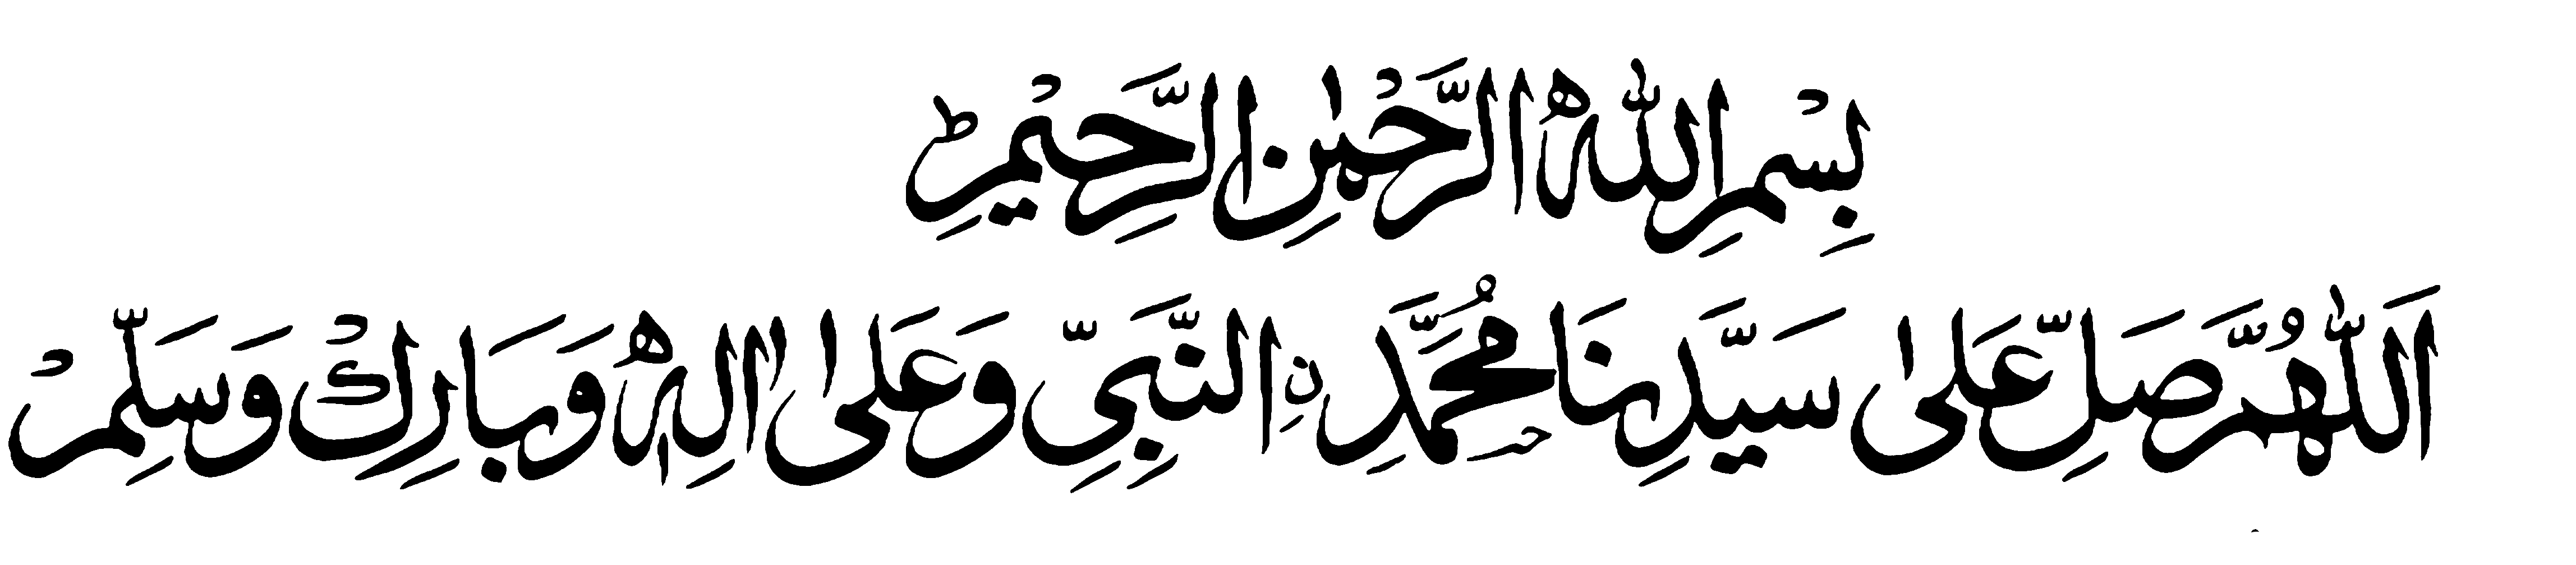 بِسْمِ اللّٰهِ الرَّحْمٰنِ الرَّحِيْمِؕ
اَللّٰهُمَّ صَلِّ عَلٰى سَيَّدِنَا مُحَمَّدِ نِ النَّبِيِّ وَعَلٰى اٰلِهٖ وَبَارِكْ وَسَلِّمْ